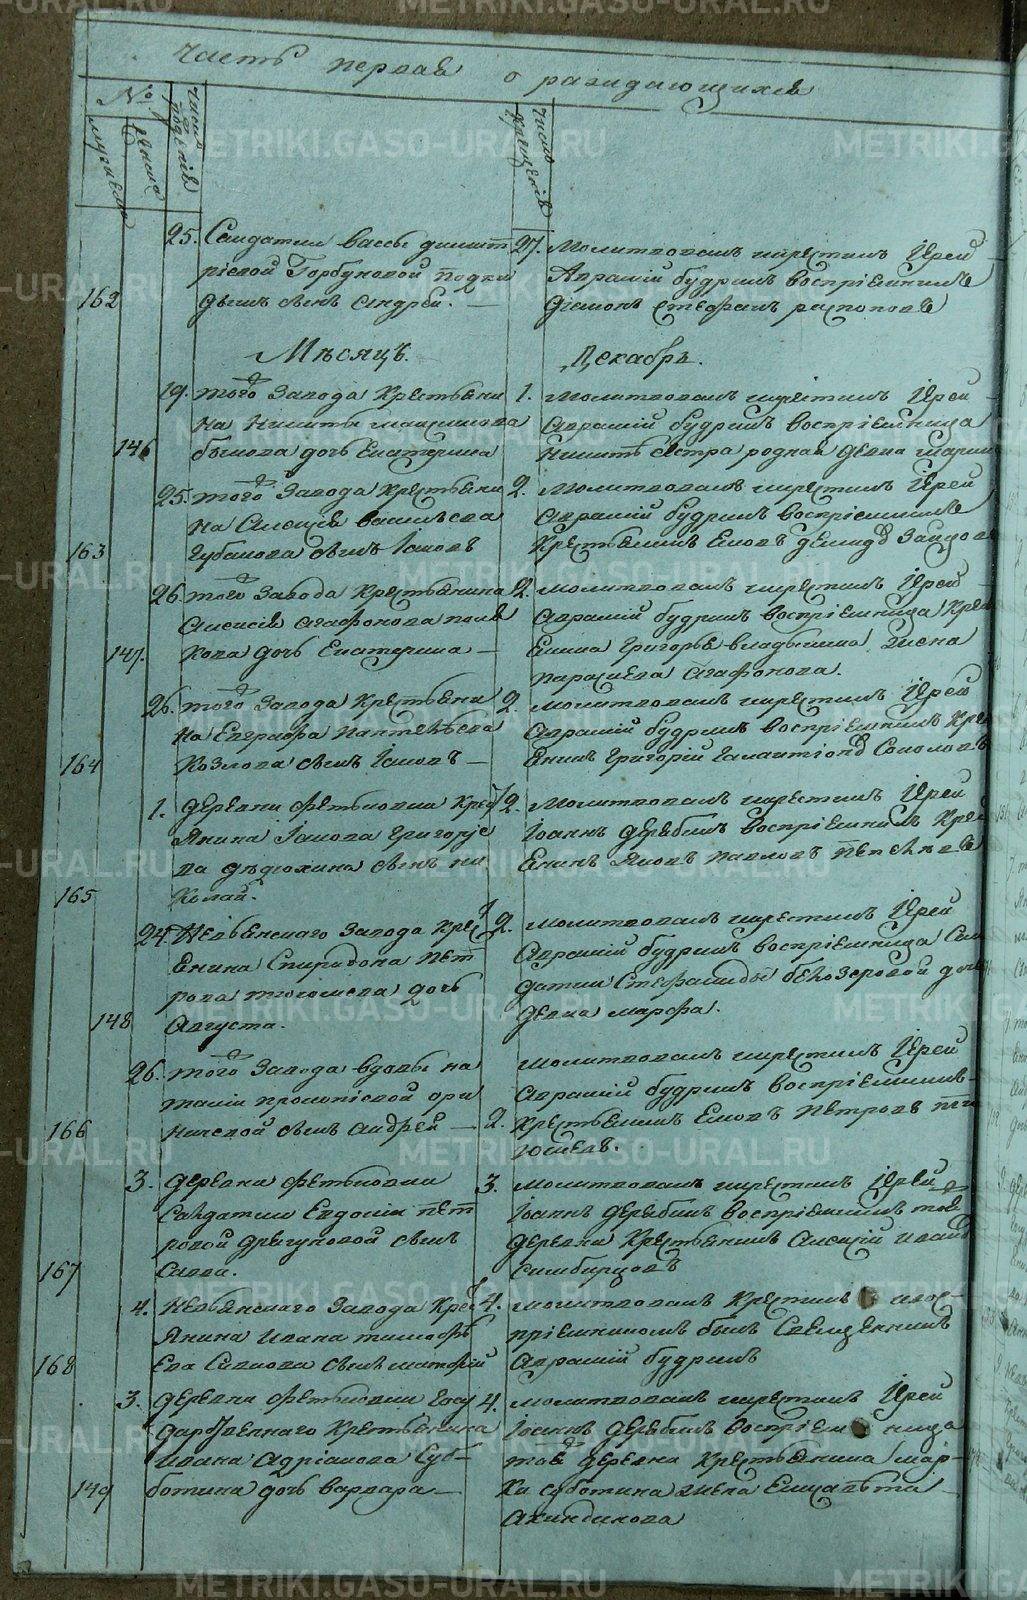 Часть первая о раждающихся
№
мужеска
женска
число рожденія
число крещенія
25. Салдатки Вассы Димит
ріевой Горбуновой подки
162 дышъ сынъ Андрей.
27. Молитвовалъ икрестилъ Іерей
Авраамій будринъ воспріемникъ
Діаконъ Стефанъ распоповъ
Мѣсяцъ. Декабрь.
19. того завода Крестьяни
на Никиты
146 дочь Екатерина
1. Молитвовалъ икрестилъ Іерей
Авраамій будринъ воспріемница
Никиты сестра родная девка Марина
25. того завода Крестьяни
на Алексія васильева
163 Губанова сынъ Іаковъ
2. Молитвовалъ икрестилъ Іерей
Авраамій будринъ воспріемникъ
Крестьянинъ Емовъ демидовъ Зайцовъ
26. того завода Крестьянина
Алексія Агафонова поля
147. кова дочь Екатерина
2. молитвовалъ икрестилъ Іерей
Авраамій будринъ воспріемница Крес
янина Григорья владыкина жена
параскева Агафонова.
26. того завода Крестьяни
на Евграфа пантелѣева
164 Козлова сынъ Іаковъ
2. молитвовалъ икрестилъ Іерей
Авраамій будринъ воспріемникъ Крес
янинъ Григорій Галактіоновъ Соколовъ
1. деревни фетьковки Крест
янина Іакова григорье
ва дѣдюхина сынъ ни
165 колай.
2. Молитвовалъ икрестилъ Іерей
Іоаннъ дерябинъ воспріемникъ Крес
янинъ Яковъ павловъ
24. Невьянскаго завода Крест
янина Спиридона пет
рова дочь
148 Августа.
2. молитвовалъ икрестилъ Іерей
Авраамій будринъ воспріемница Сал
датки Стефаниды бѣлозеровой дочь
девка марфа.
26. того завода вдовы на
таліи прокопіевой ори
166 ничевой сынъ андрей
молитвовалъ икрестилъ Іерей
Авраамій будринъ воспріемникъ
2. Крестьянинъ Емовъ петровъ
3. деревни фетьковки
Салдатки Евдокіи пет
ровой драгуновой сынъ
167 Савва.
3. молитвовалъ икрестилъ Іерей
Іоаннъ дерябинъ воспріемникъ той
деревни Крестьянинъ Алексій ивановъ
симбирцовъ
4. Невьянскаго завода Крест
янина ивана тимофѣ
168 ева сынъ матфей
4. молитвовалъ Крестилъ и вос
пріемникомъ былъ Священникъ
Авраамій будринъ
3. деревни фетьковки Госу
дарственнаго Крестьянина
ивана Адріанова Суб
149 ботина дочь варвара
4. молитвовалъ икрестилъ Іерей
Іоаннъ дерябинъ воспріемница
той деревни Крестьянина мар
ки суботина жена Елизавета
Акиндинова
METRIKI.GASO-URAL.RU